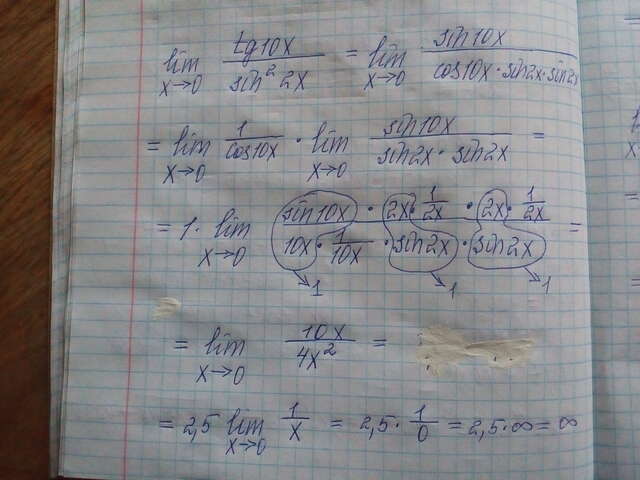 lim x→0 tg10x / sin² 2x = lim x→0 sin10x / cos10x · sin2x · sin2x
= lim x→0 1 / cos10x · lim x→0 sin10x / sin2x · sin2x =
= 1 · lim x→0 sin10x · 2x · 1/2x · 2x · 1/2x / 10x · 1/10x · sin2x · sin2x =
→1 →1 →1
= lim x→0 10x / 4x² =
= 2,5 lim x→0 1/x = 2,5 · 1/0 = 2,5 · ∞ = ∞